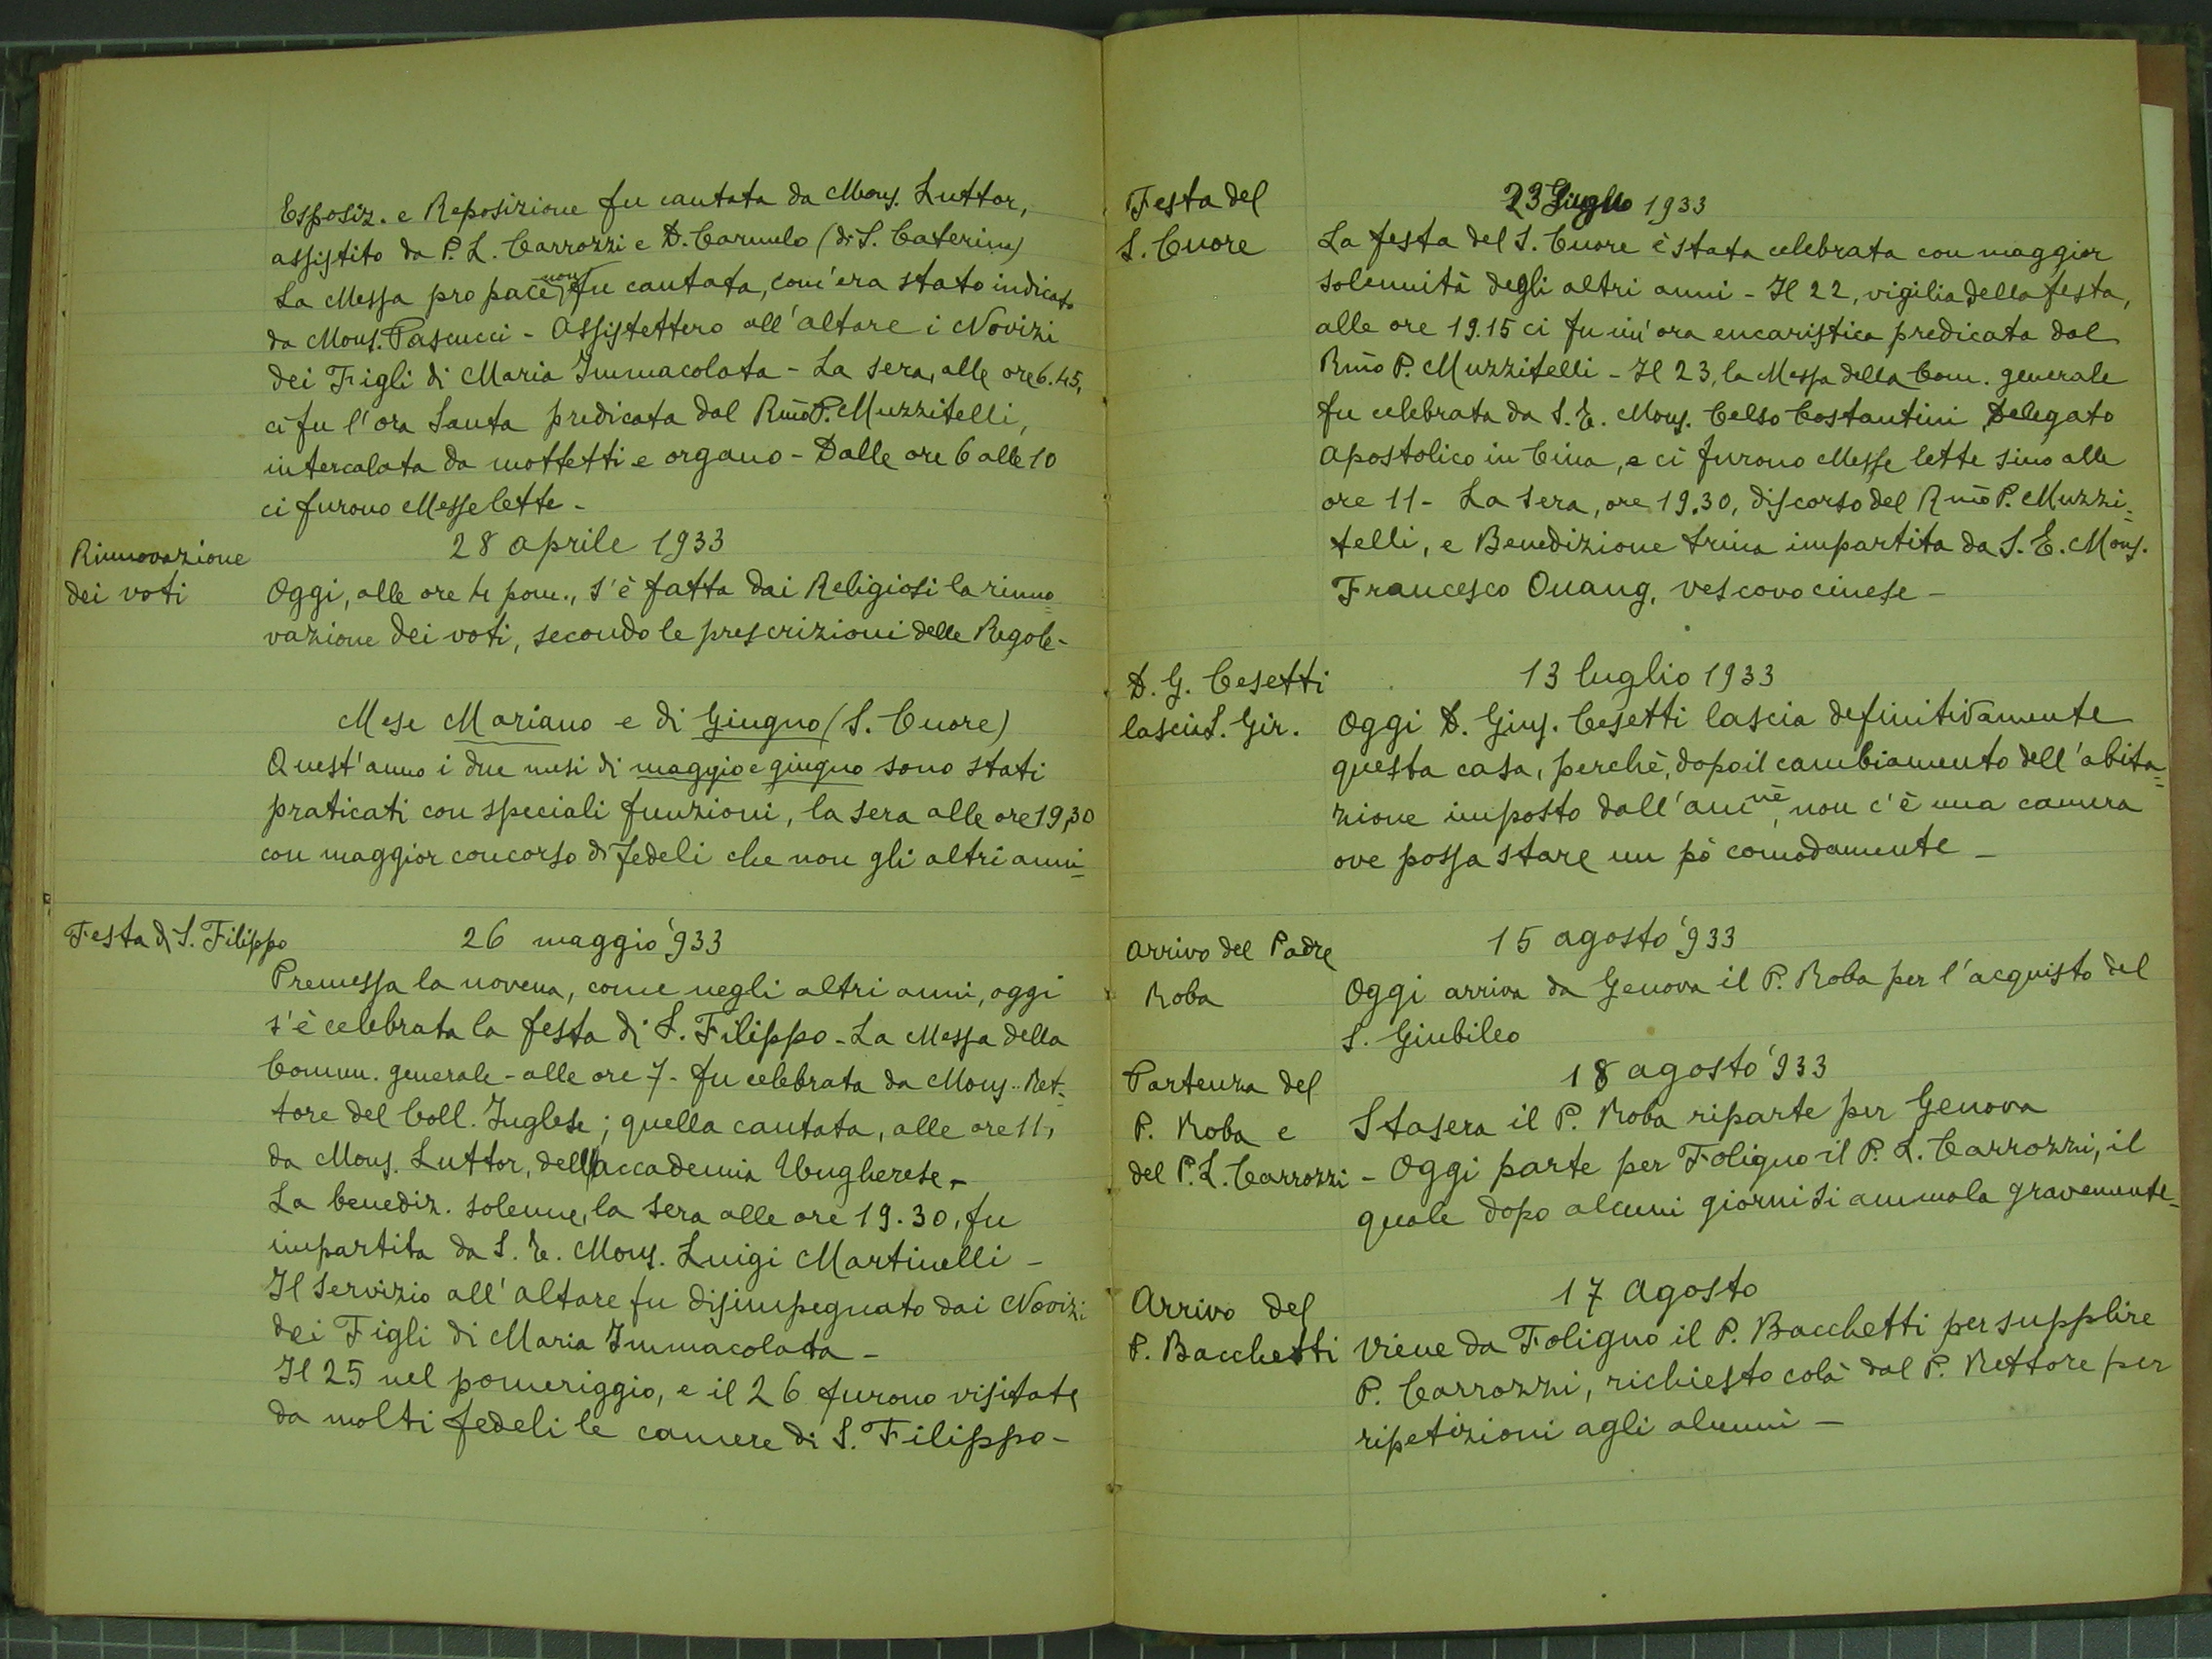 Esposiz. e Reposizione fu cantata da Mons. Luttor,
assistito da P. L. Carrozzi e D. Carmelo (di S. Caterina)
La Messa pro pace, non fu cantata, com'era stato indicato
da Mons. Pascucci - Assistettero all'altare i Novizi
dei Figli di Maria Immacolata - La sera, alle ore 6.45,
ci fu l'ora Santa predicata dal Rmo P. Muzzitelli,
intercalata da mottetti e organo - Dalle ore 6 alle 10
ci furono Messe lette -
Rinnovazione
dei voti
28 aprile 1933
Oggi, alle ore 4 pom., s'è fatta dai Religiosi la rinno=
vazione dei voti, secondo le prescrizioni delle Regole -
Mese Mariano e di Giugno (S. Cuore)
Quest'anno i due mesi di maggio e giugno sono stati
praticati con speciali funzioni, la sera alle ore 19,30
con maggior concorso di fedeli che non gli altri anni=
Festa di S. Filippo
26 maggio '933
Premessa la novena, come negli altri anni, oggi
s'è celebrata la festa di S. Filippo - La Messa della
Comun. generale - alle ore 7 - fu celebrata da Mons. Ret=
tore del Coll. Inglese; quella cantata, alle ore 11,
da Mons. Luttor, dell'accademia Ungherese -
La benediz. solenne, la sera alle ore 19.30, fu
impartita da S. E. Mons. Luigi Martinelli -
Il Servizio all'altare fu disimpegnato dai Novizi
dei Figli di Maria Immacolata -
Il 25 nel pomeriggio, e il 26 furono visitate
da molti fedeli le camere di S. Filippo -
Festa del
S. Cuore
23 Giugno 1933
La festa del S. Cuore è stata celebrata con maggior
solennità degli altri anni - Il 22, vigilia della festa,
alle ore 19.15 ci fu un'ora eucaristica predicata dal
Rmo P. Muzzitelli - Il 23, la Messa della Com. generale
fu celebrata da S. E. Mons. Celso Costantini Delegato
Apostolico in Cina, e ci furono Messe lette sino alle
ore 11 - La sera, ore 19.30, discorso del Rmo P. Muzzi=
telli, e Benedizione trina impartita da S. E. Mons.
Francesco Ouang, vescovo cinese -
D. G. Cesetti
lascia S. Gir.
13 luglio 1933
Oggi D. Gius. Cesetti lascia definitivamente
questa casa, perchè, dopo il cambiamento dell'abita=
zione imposto dall'amne, non c'è una camera
ove possa stare un pò comodamente -
Arrivo del Padre
Roba
15 agosto '933
Oggi arriva da Genova il P. Roba per l'acquisto del
S. Giubileo
Partenza del
P. Roba e
del P. L. Carrozzi
18 agosto '933
Stasera il P. Roba riparte per Genova
- Oggi parte per Foligno il P. L. Carrozzi, il
quale dopo alcuni giorni si ammala gravemente -
Arrivo del
P. Bacchetti
17 Agosto
Viene da Foligno il P. Bacchetti per supplire
P. Carrozzi, richiesto colà dal P. Rettore per
ripetizioni agli alunni -